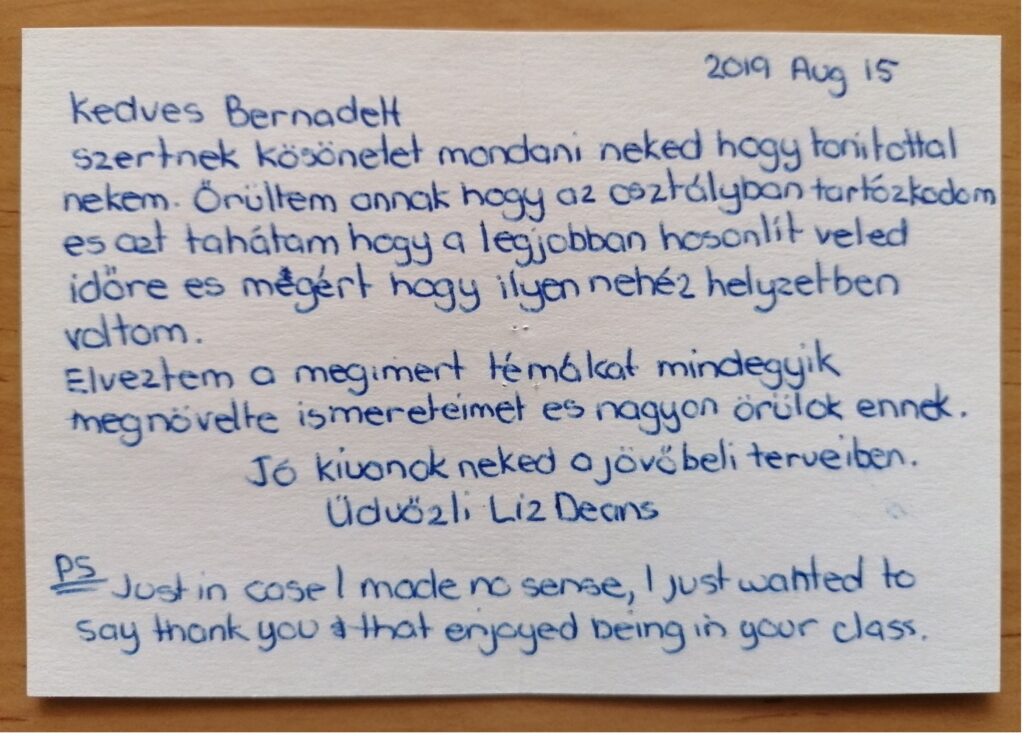 2019 Aug 15
Kedves Bernadett
szertnek kösönetet mondani neked hogy tonitottal
nekem. Örültem annak hogy az osztályban tartózkodom
es azt tahátam hogy a legjobban hosonlít veled
időre es mégért hogy ilyen nehéz helyzetben
voltom.
Elveztem a megimert témákat mindegyik
megnövelte ismereteimet es nagyon örülök ennek.
Jó kivonok neked a jövőbeli terveiben.
Üdvözli Liz Deans
PS Just in case I made no sense, I just wanted to
say thank you & that enjoyed being in your class.